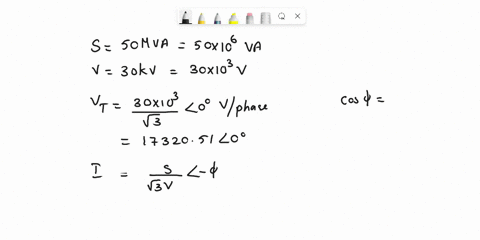 S = 50MVA = 50×10⁶ VA
V = 30kV = 30×10³ V
V_T = 30×10³/√3 <0° V/phase
cos ϕ =
= 17320.51 <0°
I = S/√3V <-ϕ